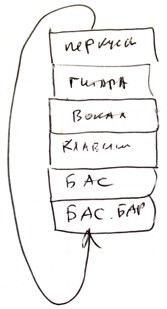 перкуси
гитара
вокал
клавиши
БАС
БАС. БАР